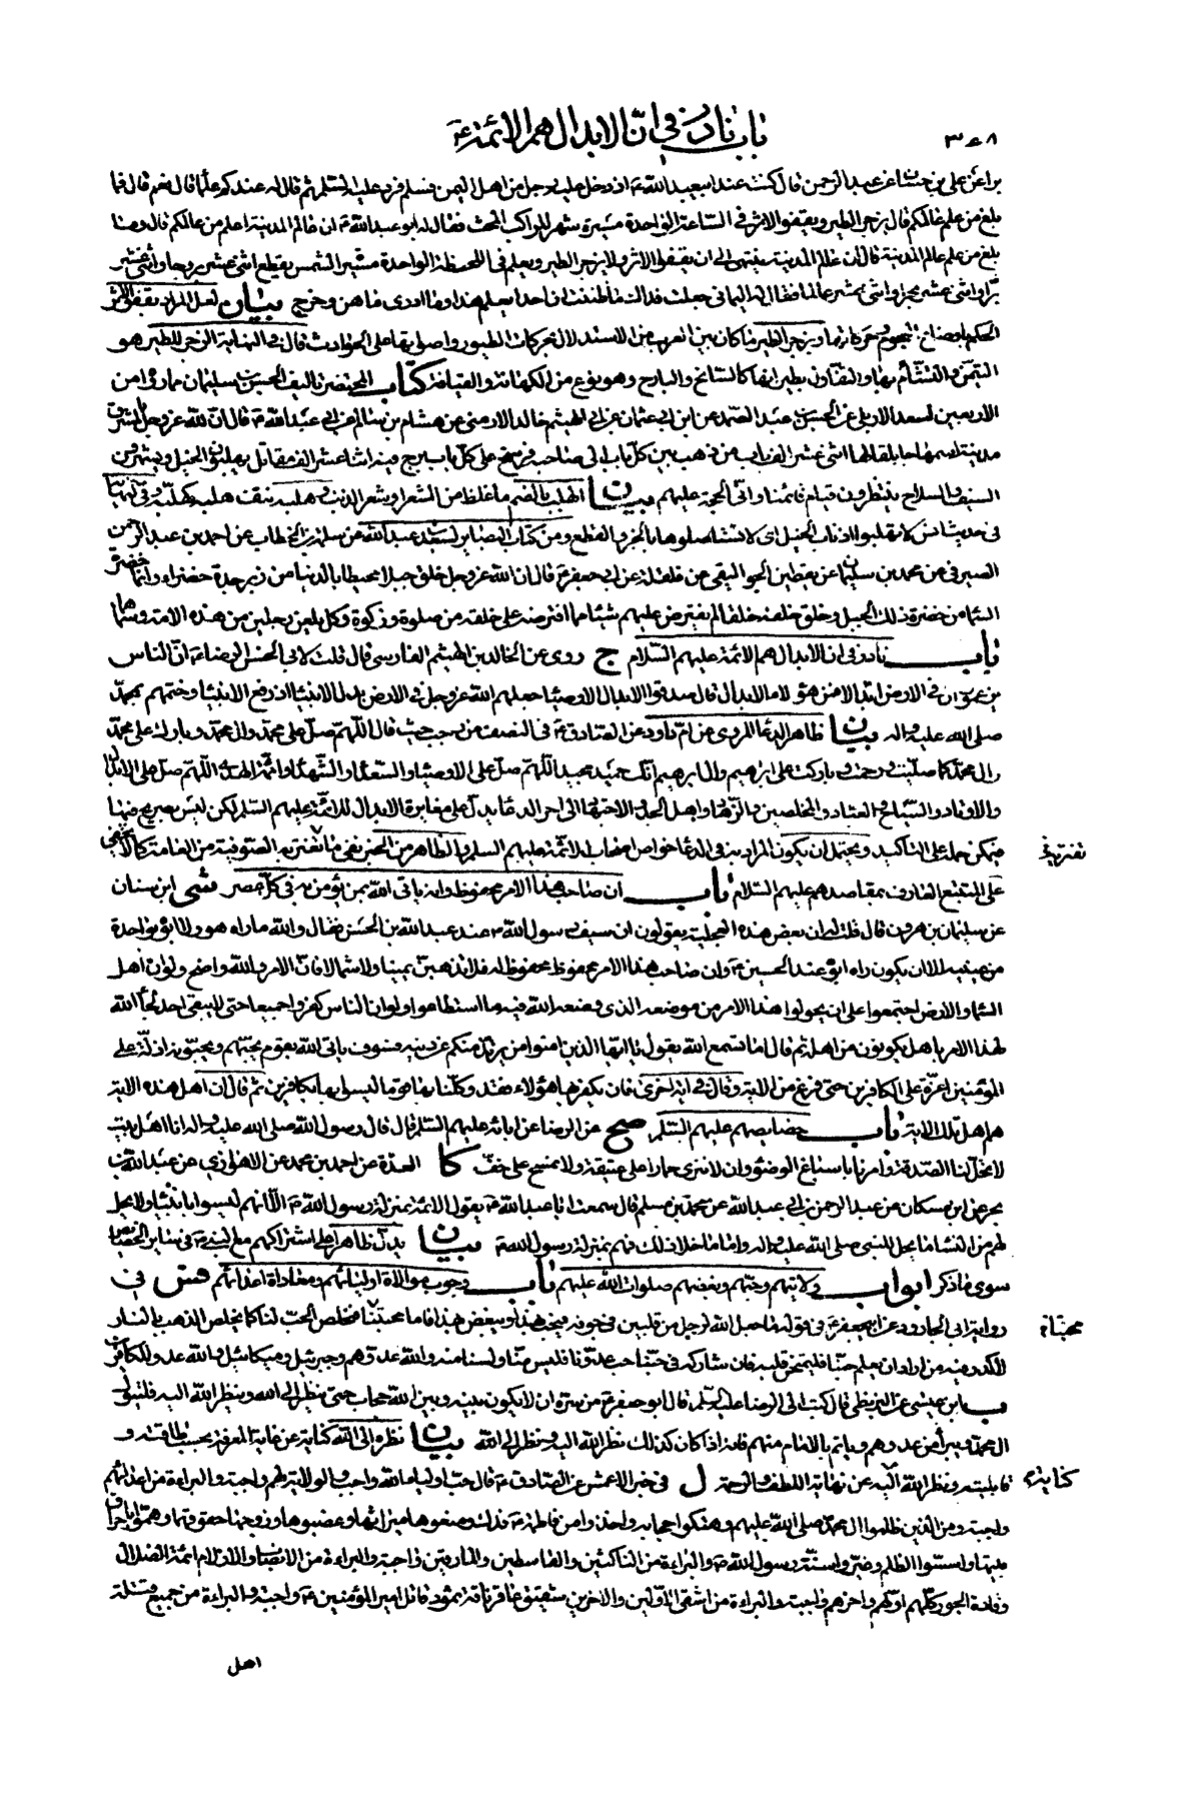 باب نادر في ان الابدال هم الائمة ع
٣٤٨
عن علي بن حسان عن عبد الرحمن قال كنت عند ابيعبد الله ع اذ دخل عليه رجل من اهل اليمن فسلم فرد عليه السلم ثم قال له عندكم علما قال نعم قال فما
بلغ من علم عالمكم قال يزجر الطير ويقفو الاثر في الساعة الواحدة مسيرة شهر للراكب المحث فقال له ابو عبد الله ع ان عالم المدينة اعلم من عالمكم قال وما
بلغ من علم عالم المدينة قال ان عالم المدينة ينتهي الى ان يقفو الاثر ولا يزجر الطير ويعلم في اللحظة الواحدة مسير الشمس يقطع اثنى عشر برجا واثنى عشر
برا واثنى عشر بحرا واثنى عشر عالما فقال له اليماني جعلت فداك ما ظننت ان احدا يعلم هذا وما ادري ما هن وخرج بيان لعل المراد بقفو الاثر
الحكم باوضاع النجوم وحركاتها ويزجر الطير ما كان بين العرب من الاستدلال بحركات الطيور واصواتها على الحوادث قال في النهاية الزجر للطير هو
التيمن والتشأم بها والتفأل بطيرانها كالسانح والبارح وهو نوع من الكهانة والعيافة كتاب المحتضر تاليف الحسن بن سليمان مما رواه من
الاربعين لسعد الاربلي عن الحسن بن عبد الصمد عن ابن ابي عثمان عن ابي الهيثم خالد الارمني عن هشام بن سالم عن ابي عبد الله ع قال ان لله عز وجل بالمشرق
مدينة اسمها جابلقا لها اثنى عشر الف باب من ذهب بين كل باب الى صاحبه فرسخ على كل باب برج فيه اثنا عشر الف مقاتل يهلبون الخيل ويشهرون
السيف والسلاح ينتظرون قيام قائمنا واني الحجة عليهم بيان الهلب بالضم ما غلظ من الشعر او شعر الذنب وهلبه نتف هلبه كهلبه وفي النهاية
في حديث انس لا تهلبوا اذناب الخيل اي لا تستاصلوها بالجز والقطع ومن كتاب البصاير لسعد بن عبد الله عن سلمة بن الخطاب عن احمد بن عبد الرحمن
الصيرفي عن محمد بن سليمان عن يقطين الجواليقي عن فلفلة عن ابي جعفر ع قال ان الله عز وجل خلق جبلا محيطا بالدنيا من زبرجدة خضراء وانما خضرة
السماء من خضرة ذلك الجبل وخلق خلفه خلقا لم يفترض عليهم شيئا مما افترضه على خلقه من صلوة وزكوة وكل يلعن رجلين من هذه الامة وسماهما
باب نادر في ان الابدال هم الائمة عليهم السلام ج روي عن الخالد بن الهيثم الفارسي قال قلت لابي الحسن الرضا ع ان الناس
يزعمون ان في الارض ابدالا فمن هؤلاء الابدال قال صدقوا الابدال الاوصياء جعلهم الله عز وجل في الارض بدل الانبياء اذ رفع الانبياء وختمهم بمحمد
صلى الله عليه واله بيان ظاهر الدعاء المروي عن ام داود عن الصادق ع في النصف من رجب حيث قال اللهم صل على محمد وال محمد وبارك على محمد
وال محمد كما صليت ورحمت وباركت على ابراهيم وال ابراهيم انك حميد مجيد اللهم صل على الاوصياء والسعداء والشهداء وائمة الهدى اللهم صل على الابدال
والاوتاد والسياح والعباد والمخلصين والزهاد واهل الجد والاجتهاد الى اخر الدعاء يدل على مغايرة الابدال للائمة عليهم السلم لكن ليس بصريح فيها
فيمكن حمله على التاكيد ويحتمل ان يكون المراد به في الدعاء خواص اصحاب الائمة عليهم السلم والظاهر من الخبر نفي ما تفتريه الصوفية من العامة كما لا يخفى
تفتريه
على المتتبع العارف بمقاصدهم عليهم السلام باب ان صاحب هذا الامر محفوظ وانه ياتي الله بمن يؤمن به في كل عصر شي ابن سنان
عن سليمان بن هرون قال قلت له ان بعض هذه العجلية يقولون ان سيف رسول الله ص عند عبد الله بن الحسن فقال والله ما راه هو ولا ابوه بواحدة
من عينيه الا ان يكون راه ابوه عند الحسين ع وان صاحب هذا الامر محفوظ محفوظ له فلا تذهبن يمينا ولا شمالا فان الامر والله واضح ولو ان اهل
السماء والارض اجتمعوا على ان يحولوا هذا الامر من موضعه الذي وضعه الله فيه ما استطاعوا ولو ان الناس كفروا جميعا حتى لا يبقى احد لجاء الله
لهذا الامر باهل يكونون من اهله ثم قال اما تسمع الله يقول يا ايها الذين امنوا من يرتد منكم عن دينه فسوف ياتي الله بقوم يحبهم ويحبونه اذلة على
المؤمنين اعزة على الكافرين حتى فرغ من الاية وقال في اية اخرى فان يكفر بها هؤلاء فقد وكلنا بها قوما ليسوا بها بكافرين ثم قال ان اهل هذه الاية
هم اهل تلك الاية باب خصايصهم عليهم السلم صح عن الرضا عن ابائه عليهم السلم قال قال رسول الله صلى الله عليه واله انا اهل بيت
لا تحل لنا الصدقة وامرنا باسباغ الوضوء وان لا ننزي حمارا على عتيقة ولا نمسح على خف كا العدة عن احمد بن محمد عن الاهوازي عن عبد الله بن
بحر عن ابن مسكان عن عبد الرحمن بن ابي عبد الله عن محمد بن مسلم قال سمعت ابا عبد الله ع يقول الائمة بمنزلة رسول الله ص الا انهم ليسوا بانبياء ولا يحل
لهم من النساء ما يحل للنبي صلى الله عليه واله واما ما خلا ذلك فهم بمنزلة رسول الله ص بيان يدل ظاهرا على اشتراكهم مع النبي ص في ساير الخصايص
سوى ما ذكر ابواب ولايتهم وحبهم وبغضهم صلوات الله عليهم باب وجوب موالاة اوليائهم ومعاداة اعدائهم فس في
رواية ابي الجارود عن ابيجعفر ع في قوله ما جعل الله لرجل من قلبين في جوفه فيحب هذا ويبغض هذا فاما محبنا فمخلص الحب لنا كما يخلص الذهب بالنار
محبنا
لا كدر فيه من اراد ان يعلم حبنا فليمتحن قلبه فان شاركه في حبنا حب عدونا فليس منا ولسنا منه والله عدوهم وجبرئيل وميكائيل والله عدو للكافرين
ب ابن عيسى عن البزنطي قال كتب الى الرضا عليه السلم قال ابو جعفر ع من سره ان لا يكون بينه وبين الله حجاب حتى ينظر الى الله وينظر الله اليه فليتول
ال محمد ويبرأ من عدوهم وياتم بالامام منهم فانه اذا كان كذلك نظر الله اليه ونظر الى الله بيان نظره الى الله كناية عن غاية المعرفة بحسب طاقته و
قابليته ونظر الله اليه عن نهاية اللطف والرحمة ل في خبر الاعمش عن الصادق ع قال حب اولياء الله واجب والولاية لهم واجبة والبراءة من اعدائهم
كناية
واجبة ومن الذين ظلموا ال محمد صلى الله عليهم وهتكوا حجابه واخذوا من فاطمة ع فدك ومنعوها ميراثها وغصبوها وزوجها حقوقهما وهموا باحراق
بيتها واسسوا الظلم وغيروا سنة رسول الله ص والبراءة من الناكثين والقاسطين والمارقين واجبة والبراءة من الانصاب والازلام ائمة الضلال
وقادة الجور كلهم اولهم واخرهم واجبة والبراءة من اشقى الاولين والاخرين شقيق عاقر ناقة ثمود قاتل امير المؤمنين ع واجبة والبراءة من جميع قتلة
اهل